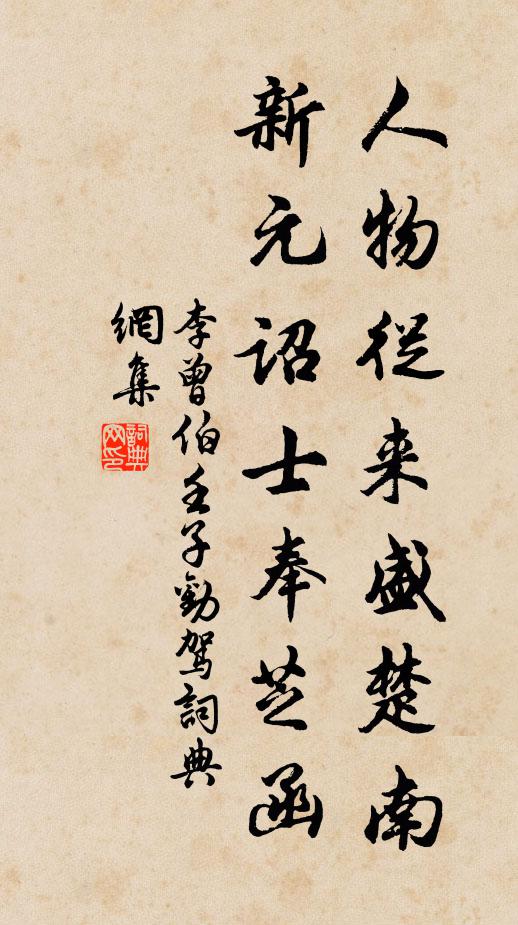 人物從来盛楚南
新元詔士奉芝函
李曾伯壬子勸駕詞典
網集
詞典網印